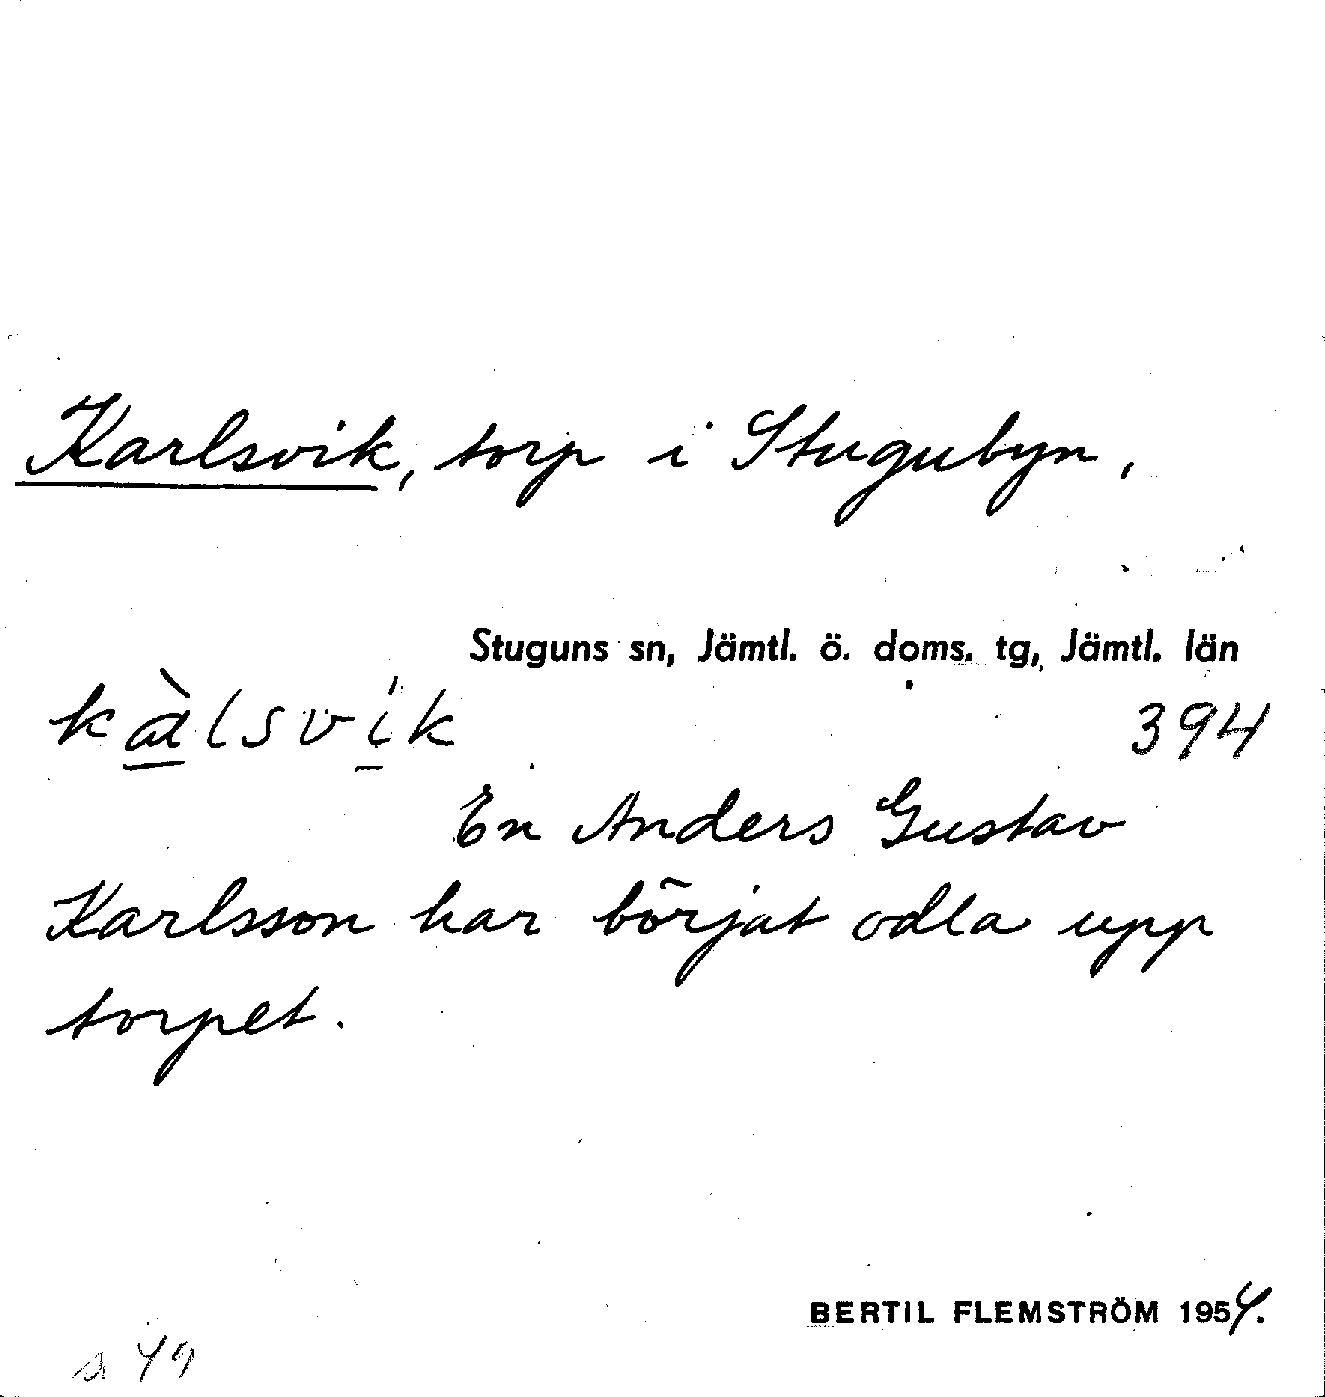 Karlsvik, torp i Stugubyn,
Stuguns sn, Jämtl. ö. doms. tg, Jämtl. län
kàlsvík 394
En Anders Gustav
Karlsson har börjat odla upp
torpet.
BERTIL FLEMSTRÖM 1954.